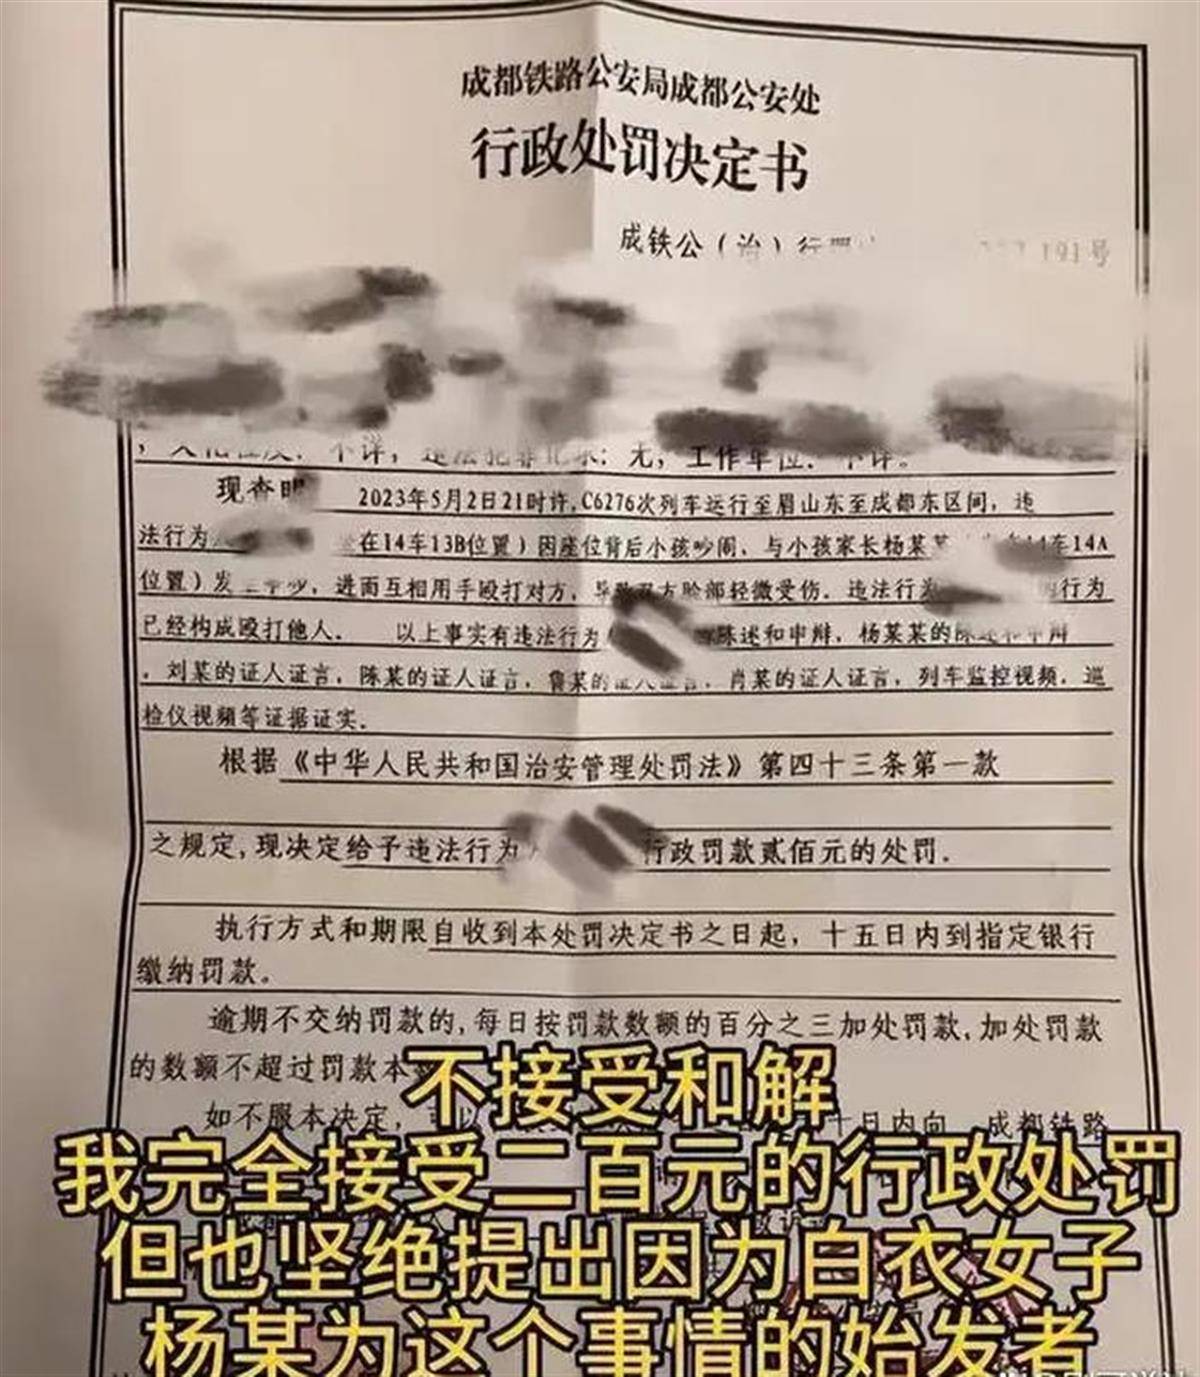 成都铁路公安局成都公安处
行政处罚决定书
成铁公(治)行罚 191号
不详，违法犯罪记录：无，工作单位：不详。
现查明 2023年5月2日21时许,C6276次列车运行至眉山东至成都东区间，违
法行为 在14车13B位置）因座位背后小孩吵闹，与小孩家长杨某某 14车14A
位置）发生争吵，进而互相用手殴打对方，导致双方脸部轻微受伤．违法行为 的行为
已经构成殴打他人． 以上事实有违法行为人 陈述和申辩，杨某某的陈述和申辩
，刘某的证人证言，陈某的证人证言，鲁某的证人证言，肖某的证人证言，列车监控视频，巡
检仪视频等证据证实．
根据《中华人民共和国治安管理处罚法》第四十三条第一款
之规定,现决定给予违法行为人 行政罚款贰佰元的处罚．
执行方式和期限自收到本处罚决定书之日起，十五日内到指定银行
缴纳罚款。
逾期不交纳罚款的,每日按罚款数额的百分之三加处罚款,加处罚款
的数额不超过罚款本
不接受和解
如不服本决定， 十日内向 成都铁路
我完全接受二百元的行政处罚
但也坚绝提出因为白衣女子
杨某为这个事情的始发者